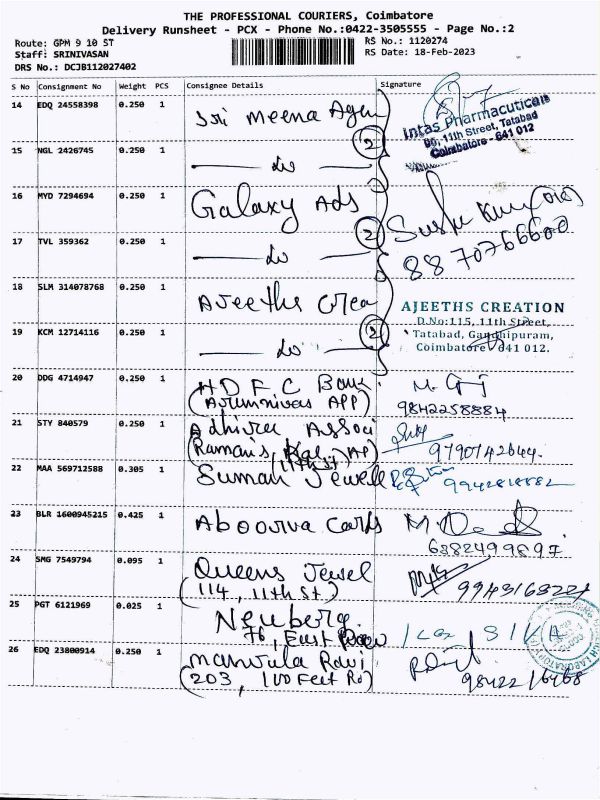 THE PROFESSIONAL COURIERS, Coimbatore
Delivery Runsheet - PCX - Phone No.:0422-3505555 - Page No.:2
Route: GPM 9 10 ST
RS No.: 1120274
Staff: SRINIVASAN
RS Date: 18-Feb-2023
DRS No.: DCJB112027402
S No Consignment No Weight PCS Consignee Details Signature
14 EDQ 24558398 0.250 1 Sri Meena Agen
Intas Pharmaceuticals
86, 11th Street, Tatabad
Coimbatore - 641 012
15 NGL 2426745 0.250 1 — do — 2
16 MYD 7294694 0.250 1 Galaxy Ads
8870766600
17 TVL 359362 0.250 1 — do — 2
18 SLM 314078768 0.250 1 Ajeeths Crea
AJEETHS CREATION
D.No:115, 11th Street,
Tatabad, Gandhipuram,
Coimbatore - 641 012.
19 KCM 12714116 0.250 1 — do — 2
20 DDG 4714947 0.250 1 HDFC Bank
(Arumnivas APP)
9842258884
21 STY 840579 0.250 1 Adhiree Associ
11th St)
9790742644.
22 MAA 569712588 0.305 1 Suman Jewell
23 BLR 1600945215 0.425 1 Aboorva Cards
6382499897
24 SMG 7549794 0.095 1 Queens Jewel
(114, 11th St)
25 PGT 6121969 0.025 1 Neuberg
76, East
SIVA
26 EDQ 23800914 0.250 1 Manjula Ravi
(203, 100 Feet Rd)